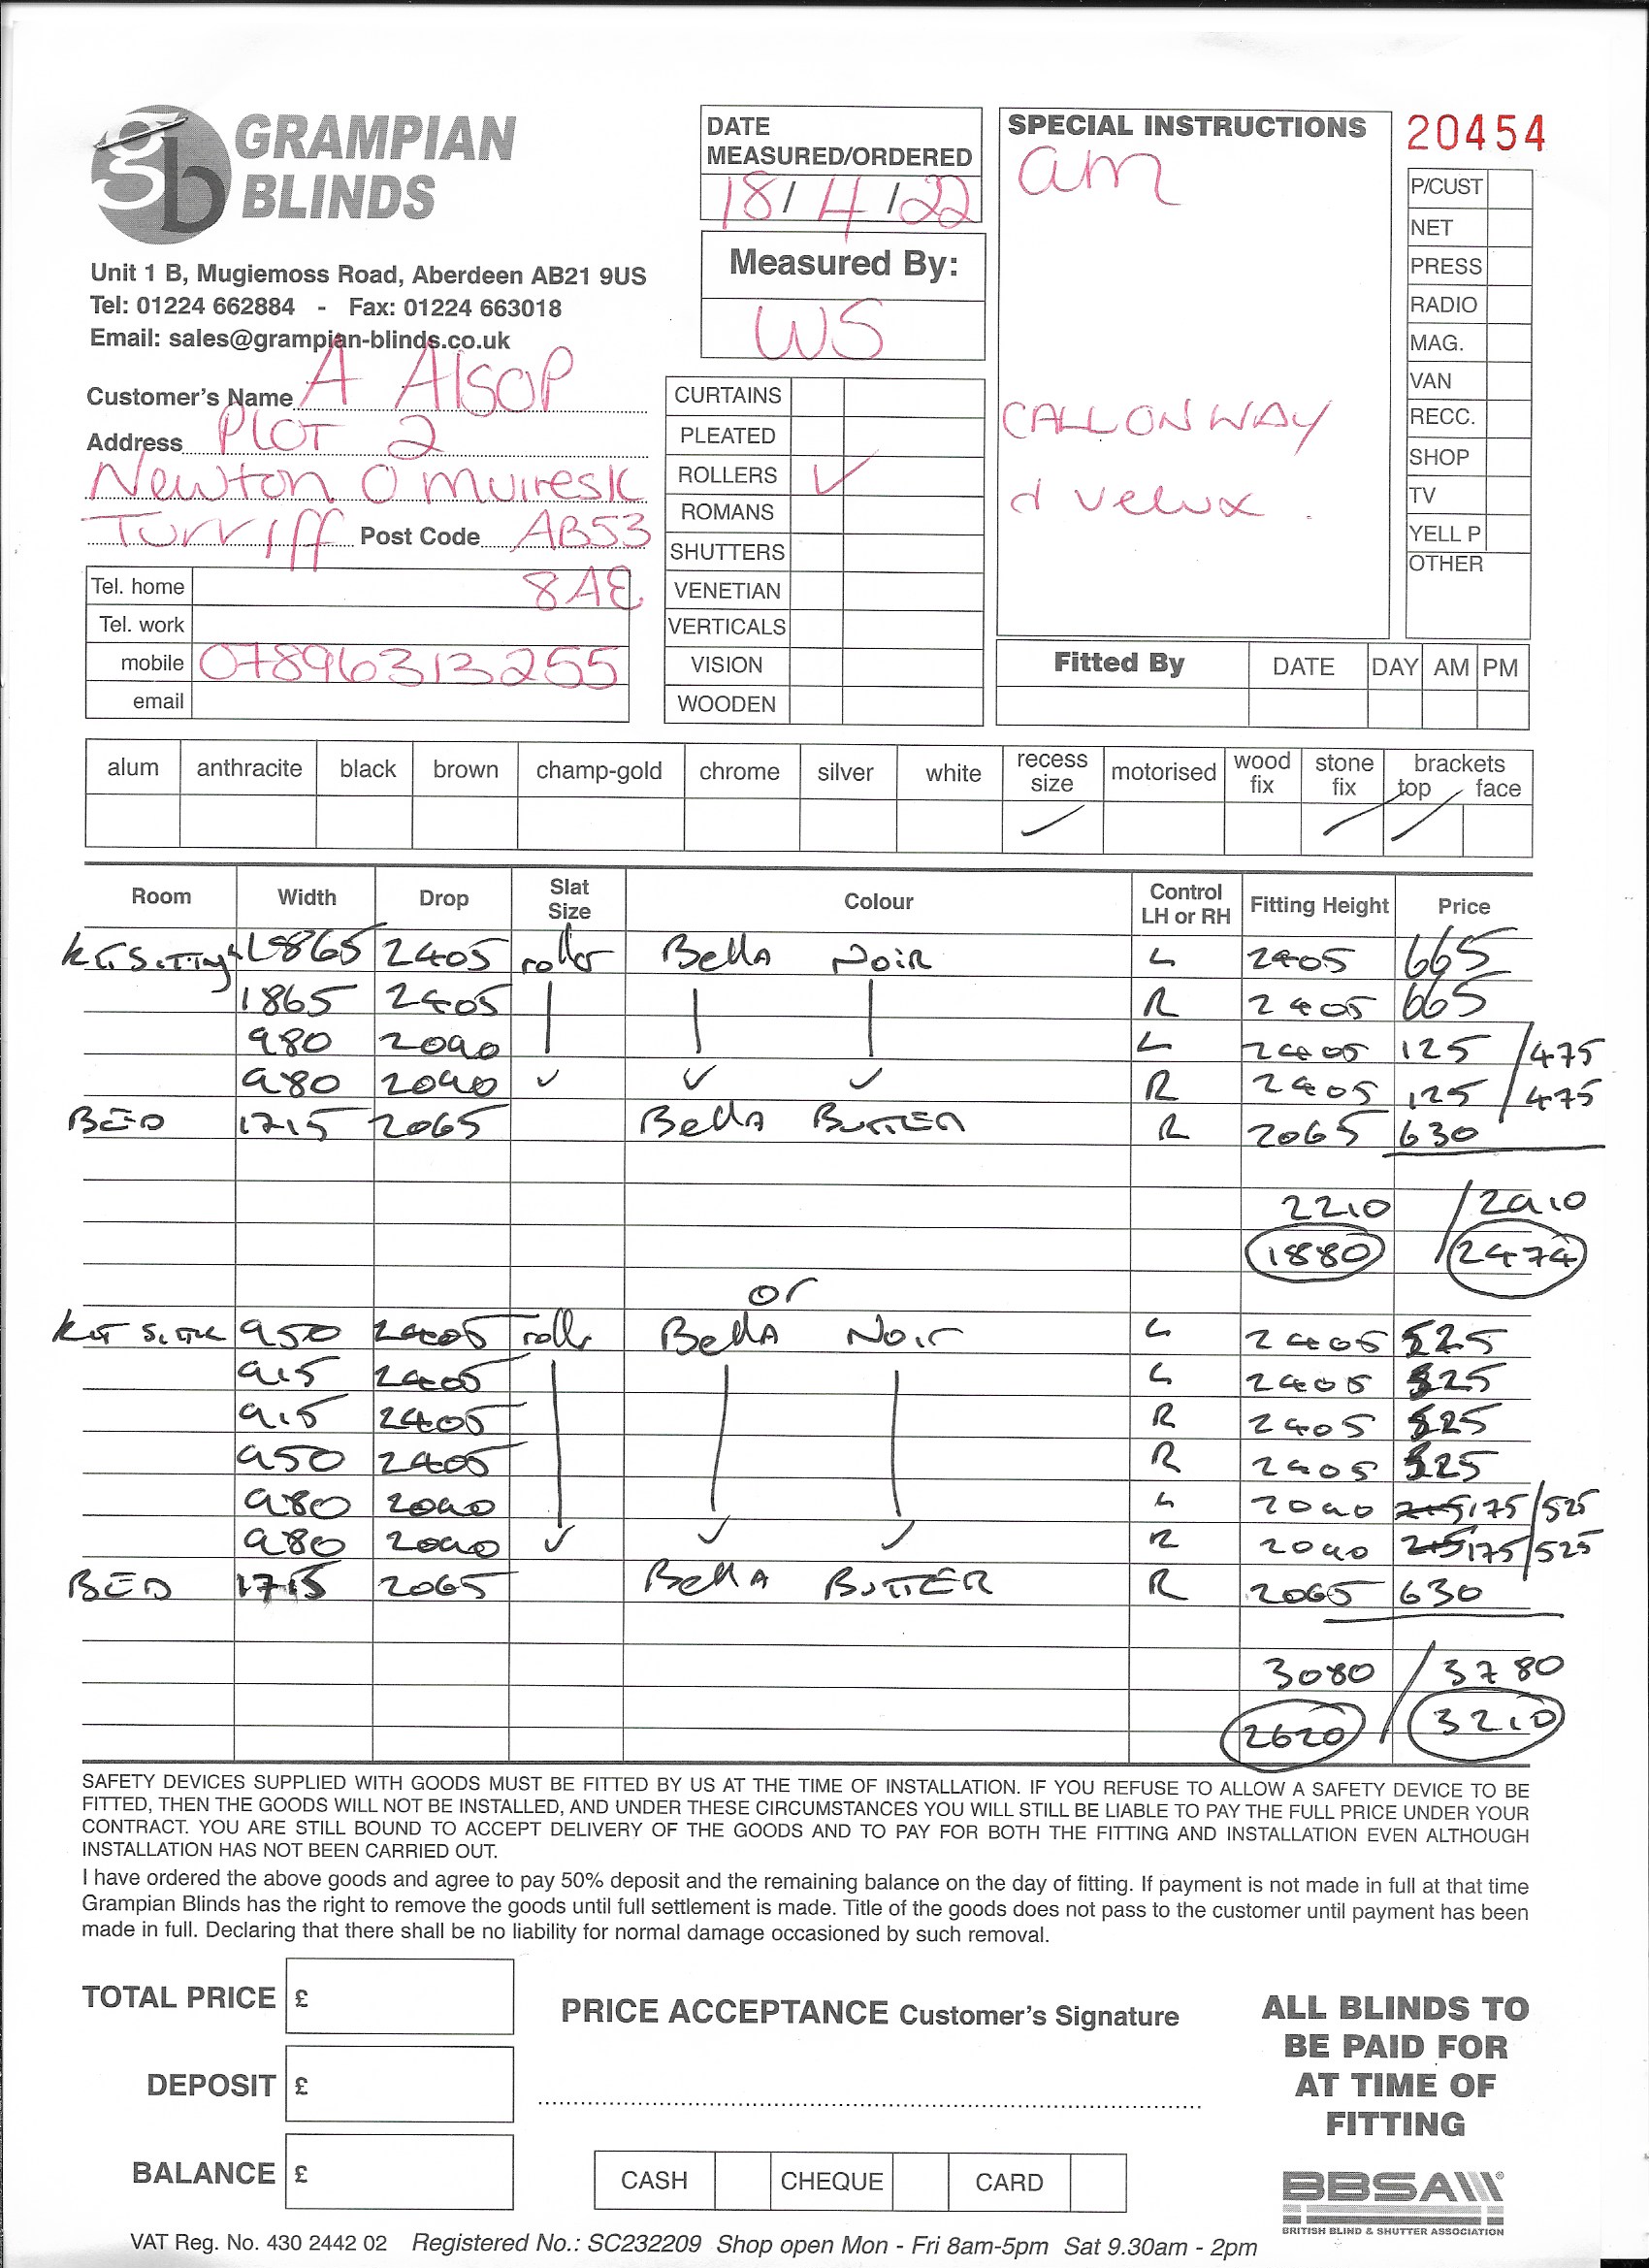 gb GRAMPIAN BLINDS
Unit 1 B, Mugiemoss Road, Aberdeen AB21 9US
Tel: 01224 662884 - Fax: 01224 663018
Email: sales@grampian-blinds.co.uk
Customer's Name A Alsop
Address PLOT 2
Newton O Muiresk
Turriff Post Code AB53
8AE
Tel. home
Tel. work
mobile 07896313255
email
DATE
MEASURED/ORDERED
18/4/22
Measured By:
WS
CURTAINS
PLEATED
ROLLERS ✓
ROMANS
SHUTTERS
VENETIAN
VERTICALS
VISION
WOODEN
SPECIAL INSTRUCTIONS
am
CALL ON WAY
d velux.
20454
P/CUST
NET
PRESS
RADIO
MAG.
VAN
RECC.
SHOP
TV
YELL P
OTHER
Fitted By DATE DAY AM PM
alum anthracite black brown champ-gold chrome silver white recess size motorised wood fix stone fix brackets top face
Room Width Drop Slat Size Colour Control LH or RH Fitting Height Price
1865 2405 roller Bella Noir L 2405 665
1865 2405 R 2405 665
980 2090 L 2405 125 /475
980 2090 ✓ ✓ ✓ R 2405 125 /475
BED 1715 2065 Bella BUTTER R 2065 630
2210 / 2910
1880 / 2474
or
950 2405 roller Bella Noir L 2405 525
915 2405 L 2405 525
915 2405 R 2405 525
950 2405 R 2405 525
980 2090 L 2090 175/525
980 2090 ✓ ✓ ✓ R 2090 175/525
BED 1715 2065 Bella BUTTER R 2065 630
3080 / 3780
2620 / 3210
SAFETY DEVICES SUPPLIED WITH GOODS MUST BE FITTED BY US AT THE TIME OF INSTALLATION. IF YOU REFUSE TO ALLOW A SAFETY DEVICE TO BE
FITTED, THEN THE GOODS WILL NOT BE INSTALLED, AND UNDER THESE CIRCUMSTANCES YOU WILL STILL BE LIABLE TO PAY THE FULL PRICE UNDER YOUR
CONTRACT. YOU ARE STILL BOUND TO ACCEPT DELIVERY OF THE GOODS AND TO PAY FOR BOTH THE FITTING AND INSTALLATION EVEN ALTHOUGH
INSTALLATION HAS NOT BEEN CARRIED OUT.
I have ordered the above goods and agree to pay 50% deposit and the remaining balance on the day of fitting. If payment is not made in full at that time
Grampian Blinds has the right to remove the goods until full settlement is made. Title of the goods does not pass to the customer until payment has been
made in full. Declaring that there shall be no liability for normal damage occasioned by such removal.
TOTAL PRICE £
DEPOSIT £
BALANCE £
PRICE ACCEPTANCE Customer's Signature
CASH CHEQUE CARD
ALL BLINDS TO
BE PAID FOR
AT TIME OF
FITTING
BBSA
BRITISH BLIND & SHUTTER ASSOCIATION
VAT Reg. No. 430 2442 02 Registered No.: SC232209 Shop open Mon - Fri 8am-5pm Sat 9.30am - 2pm